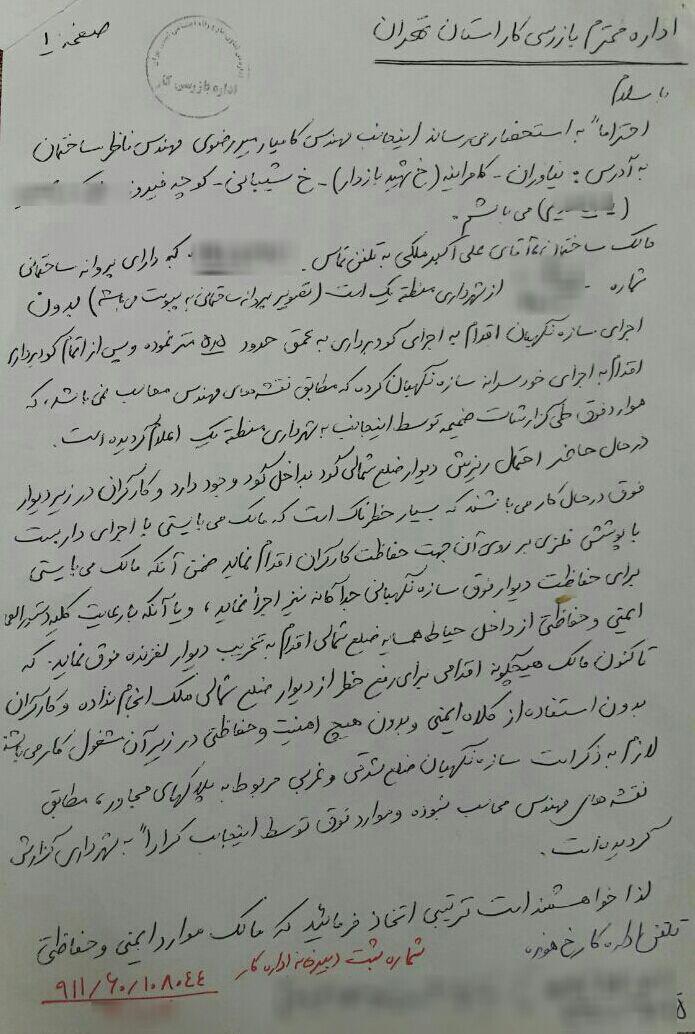 صفحه ۱
اداره محترم بازرسی کار استان تهران
اداره بازرسی کار
با سلام
احتراماً به استحضار می‌رساند اینجانب مهندس کامیار میررضوی مهندس ناظر ساختمان
به آدرس: نیاوران - کامرانیه (خ شهید بازدار) - خ شیبانی - کوچه فیروز
می باشم.
مالک ساختمان آقای علی اکبر ملکی به تلفن تماس که دارای پروانه ساختمانی
شماره از شهرداری منطقه یک است (تصویر پروانه ساختمانی به پیوست می باشد) بدون
اجرای سازه نگهبان اقدام به اجرای گودبرداری به عمق حدود ۵٫۵ متر نموده و پس از اتمام گودبرداری
اقدام به اجرای خودسرانه سازه نگهبان کرده که مطابق نقشه‌های مهندس محاسب نمی باشد، که
موارد فوق طی گزارشات ضمیمه توسط اینجانب به شهرداری منطقه یک اعلام گردیده است.
در حال حاضر احتمال ریزش دیوار ضلع شمالی گود بداخل گود وجود دارد و کارگران در زیر دیوار
فوق در حال کار می باشند که بسیار خطرناک است که مالک می بایستی با اجرای داربست
با پوشش فلزی بر روی آن جهت حفاظت کارگران اقدام نماید ضمن آنکه مالک می بایستی
برای حفاظت دیوار فوق سازه نگهبانی جداگانه نیز اجرا نماید، و یا آنکه با رعایت کلیه دستورالعمل
ایمنی و حفاظتی از داخل حیاط همسایه ضلع شمالی اقدام به تخریب دیوار لغزنده فوق نماید. که
تاکنون مالک هیچگونه اقدامی برای رفع خطر از دیوار ضلع شمالی ملک انجام نداده و کارگران
بدون استفاده از کلاه ایمنی و بدون هیچ امنیت و حفاظتی در زیر آن مشغول کار می باشند
لازم به ذکر است سازه نگهبان ضلع شرقی و غربی مربوط به پلاکهای مجاور، مطابق
نقشه های مهندس محاسب نبوده و موارد فوق توسط اینجانب کراراً به شهرداری گزارش
گردیده است.
لذا خواهشمند است ترتیبی اتخاذ فرمائید که مالک موارد ایمنی و حفاظتی
تلفن اداره کار خ خوزه
شماره ثبت دبیرخانه اداره کار
۹۱۱/۶۰/۱۰۸۰۴۴